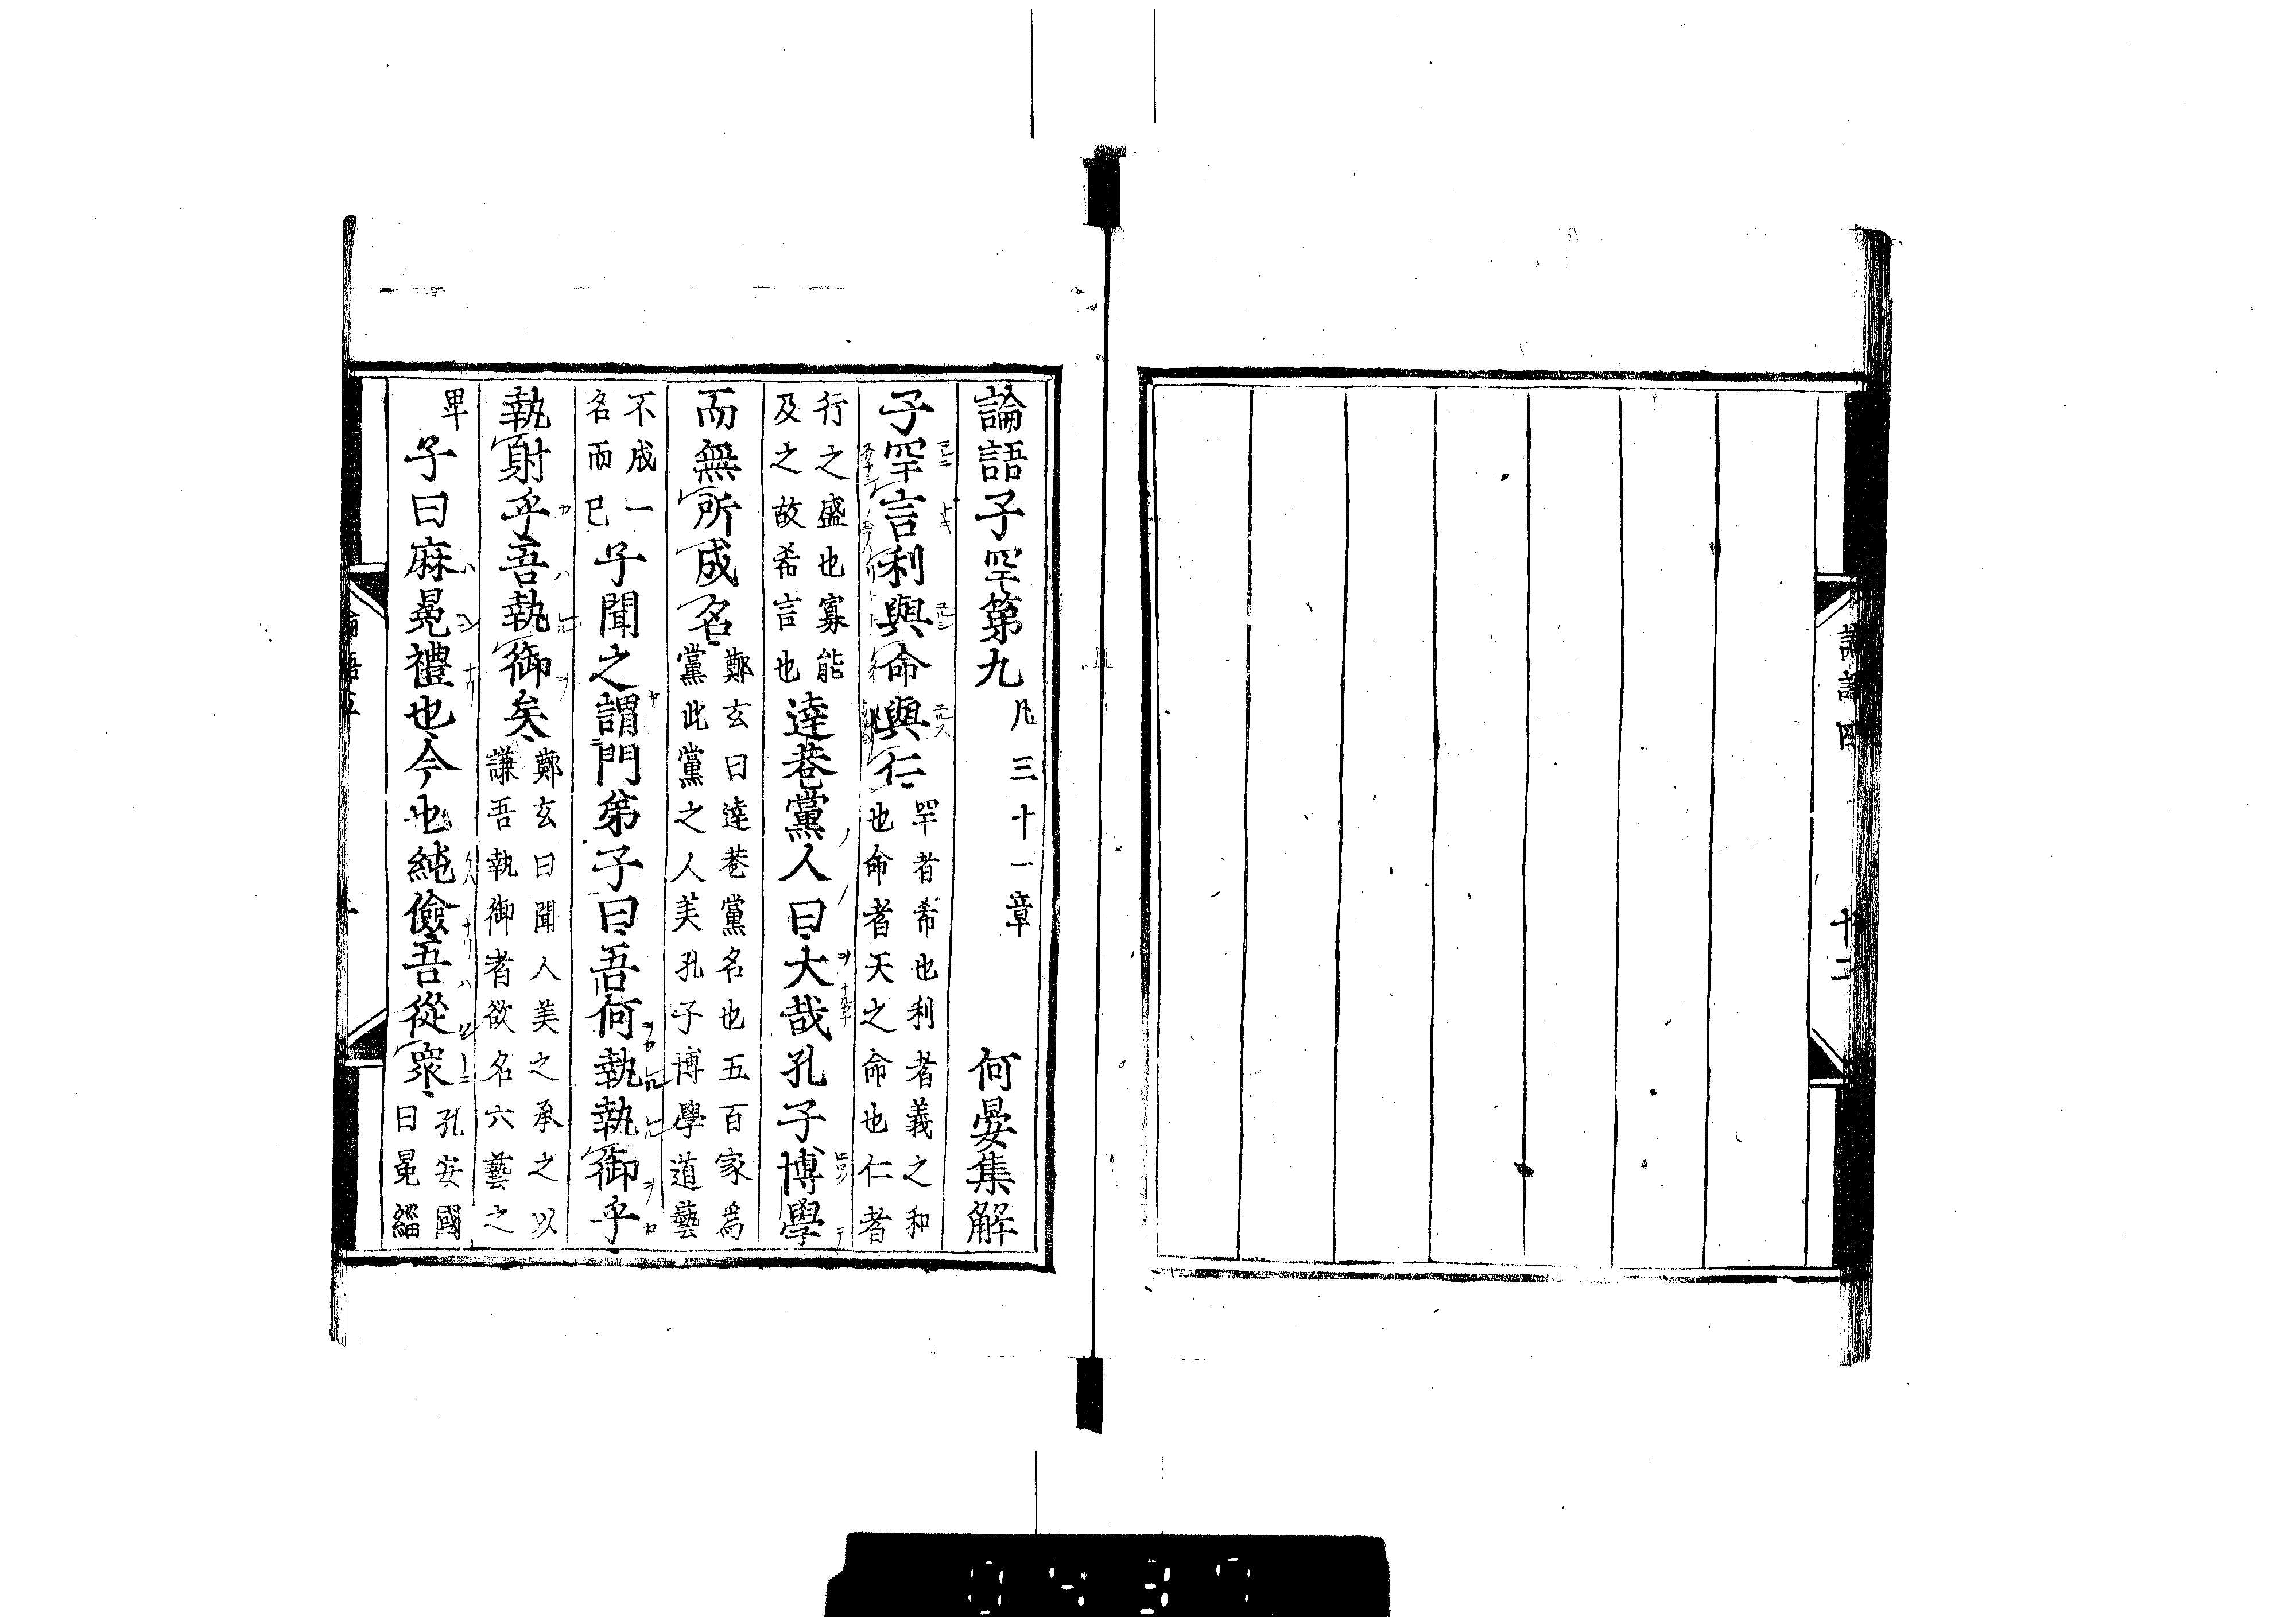 論語四
十二
論語子罕第九 凡三十一章 何晏集解
子罕言利與命與仁 罕者希也利者義之和也命者天之命也仁者
行之盛也寡能及之故希言也 達巷黨人曰大哉孔子博學
而無所成名 鄭玄曰達巷黨名也五百家爲黨此黨之人美孔子博學道藝
不成一名而已 子聞之謂門弟子曰吾何執執御乎
執射乎吾執御矣 鄭玄曰聞人美之承之以謙吾執御者欲名六藝之
卑 子曰麻冕禮也今也純儉吾從衆 孔安國曰冕緇
0437